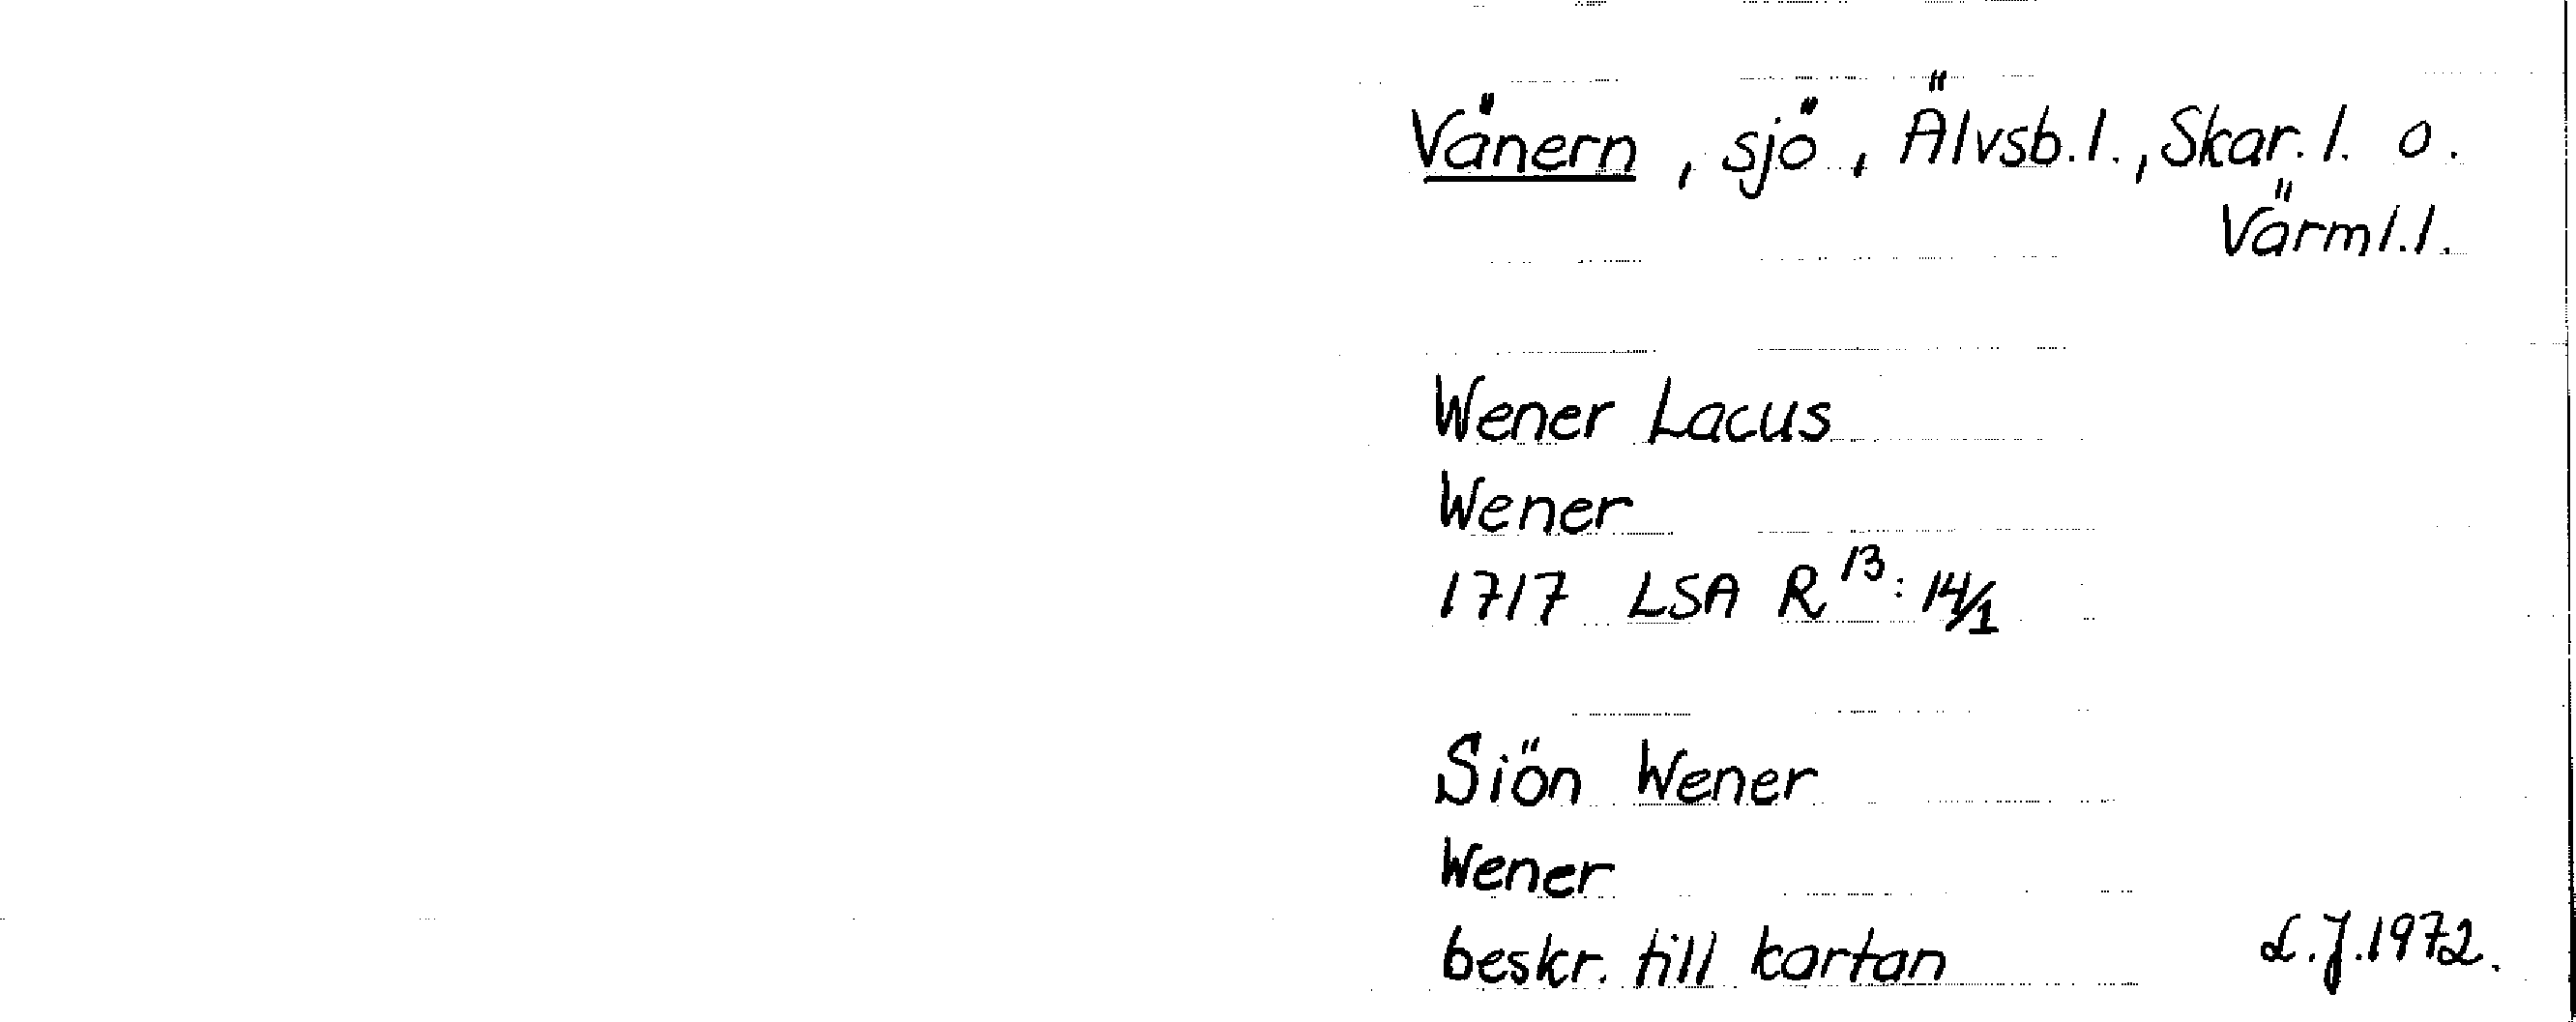 Vänern, sjö, Älvsb.l., Skar.l. o.
Värml.l.
Wener Lacus
Wener
1717 LSA R 13: 14/1
Siön Wener
Wener
beskr. till kartan
L.J.1972.